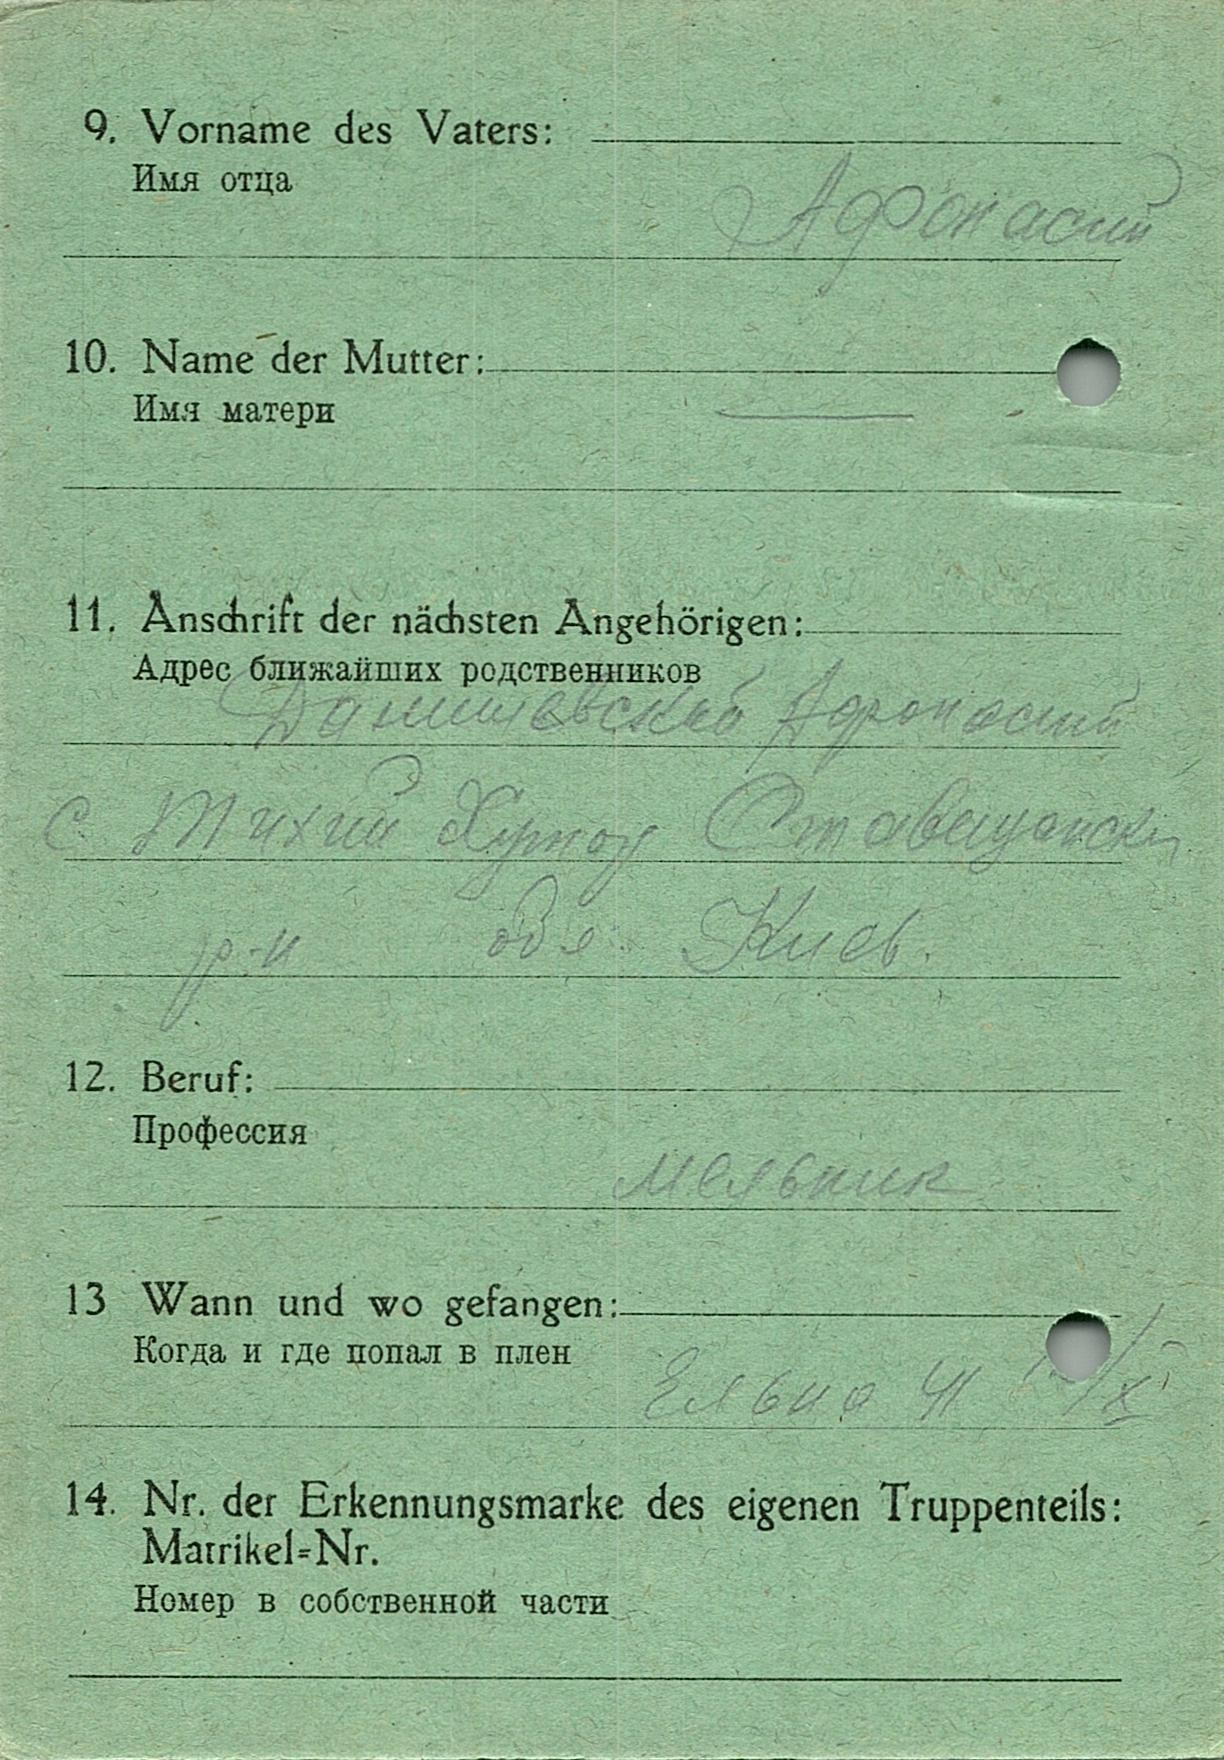 9. Vorname des Vaters:
Имя отца
Афонасий
10. Name der Mutter:
Имя матери
—
11. Anschrift der nächsten Angehörigen:
Адрес ближайших родственников
Афронасий
с Тихий Хутор Ставищанск
р-н обл. Киев.
12. Beruf:
Профессия
мельник
13 Wann und wo gefangen:
Когда и где попал в плен
Ельна 41
14. Nr. der Erkennungsmarke des eigenen Truppenteils:
Matrikel=Nr.
Номер в собственной части